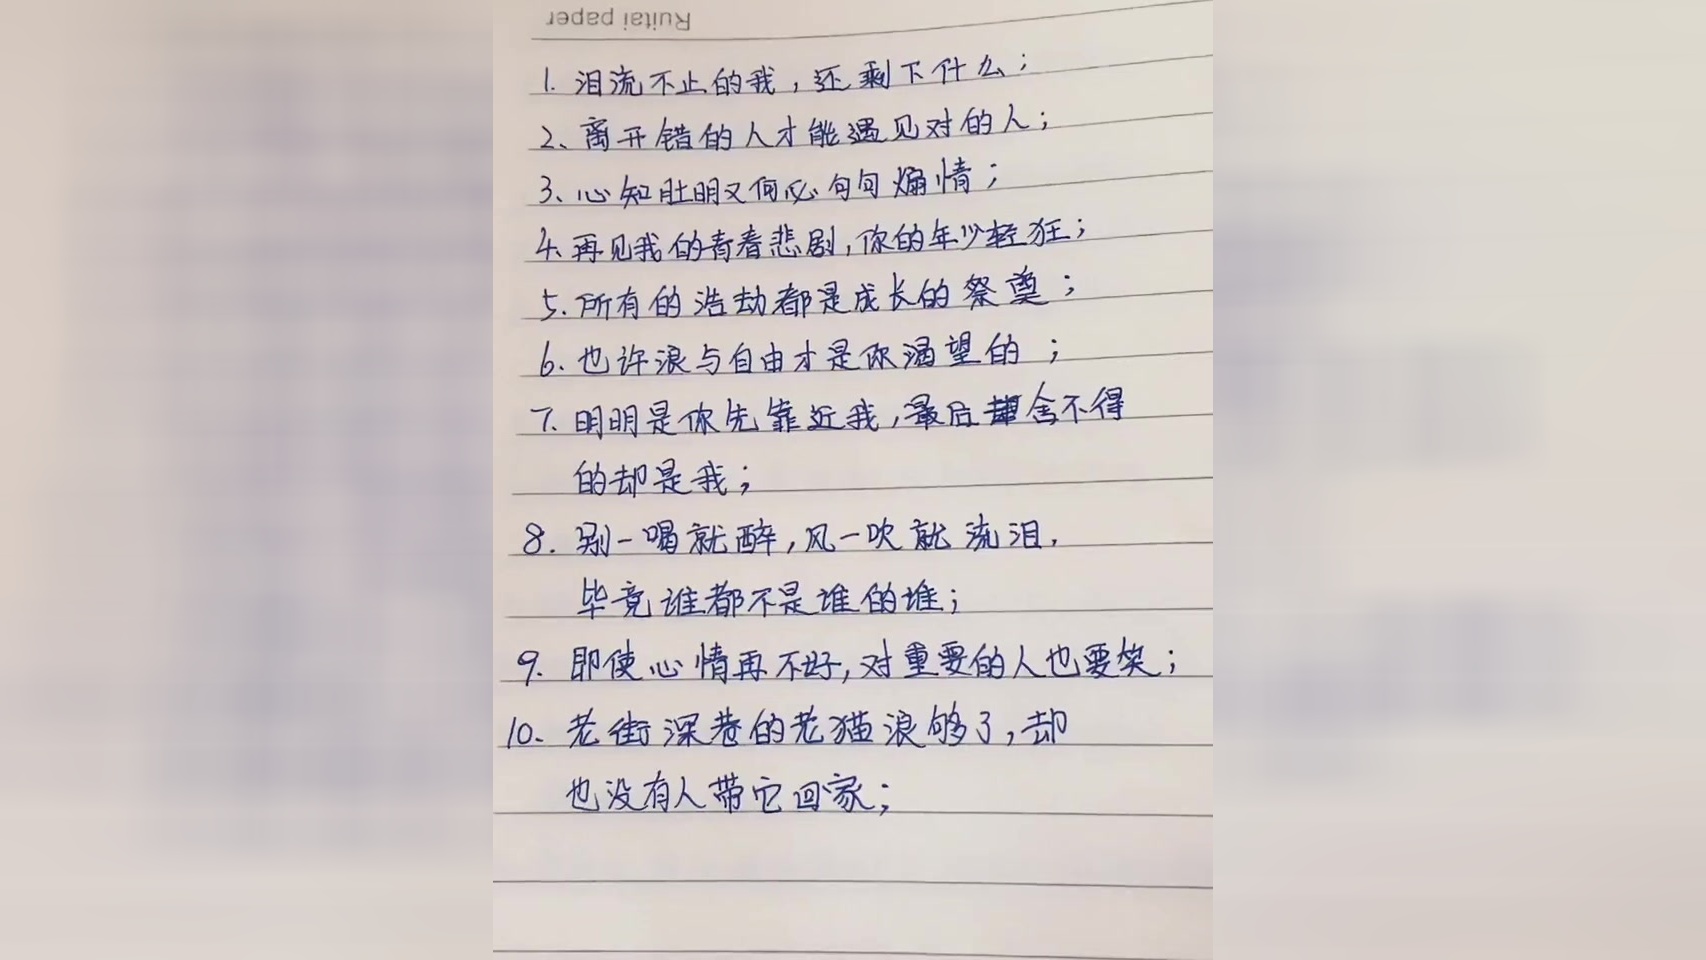 Ruitai paper
1. 泪流不止的我，还剩下什么；
2、离开错的人才能遇见对的人；
3、心知肚明又何必句句煽情；
4、再见我的青春悲剧，你的年少轻狂；
5.所有的浩劫都是成长的祭奠；
6.也许浪与自由才是你渴望的；
7.明明是你先靠近我，最后舍不得
的却是我；
8.别一喝就醉，风一吹就流泪，
毕竟谁都不是谁的谁；
9.即使心情再不好，对重要的人也要笑；
10、老街深巷的老猫浪够了，却
也没有人带它回家；